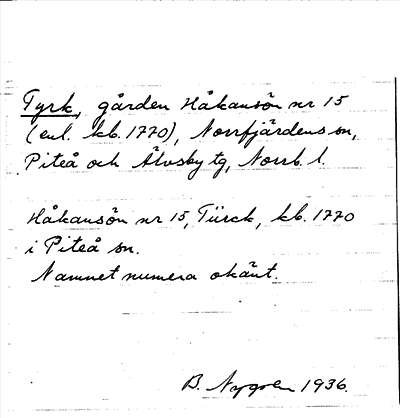 Tyrk, gården Håkansön nr 15
(enl. kb. 1770), Norrfjärdens sn,
Piteå och Älvsby tg, Norrb. l.
Håkansön nr 15, Türck, kb. 1770
i Piteå sn.
Namnet numera okänt.
B. Nygren 1936.